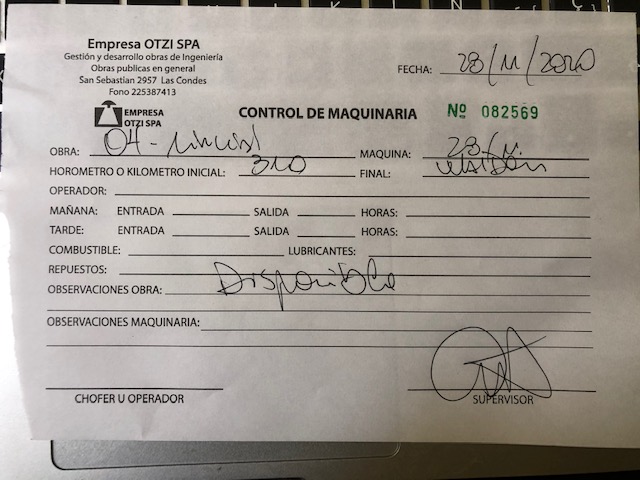 Empresa OTZI SPA
Gestión y desarrollo obras de Ingeniería
Obras publicas en general
San Sebastian 2957 Las Condes
Fono 225387413
FECHA: 28/11/2020
EMPRESA
OTZI SPA
CONTROL DE MAQUINARIA Nº 082569
OBRA: OH - MAQUINA:
HOROMETRO O KILOMETRO INICIAL: 310 FINAL:
OPERADOR:
MAÑANA: ENTRADA SALIDA HORAS:
TARDE: ENTRADA SALIDA HORAS:
COMBUSTIBLE: LUBRICANTES:
REPUESTOS:
OBSERVACIONES OBRA: Disponible
OBSERVACIONES MAQUINARIA:
CHOFER U OPERADOR SUPERVISOR